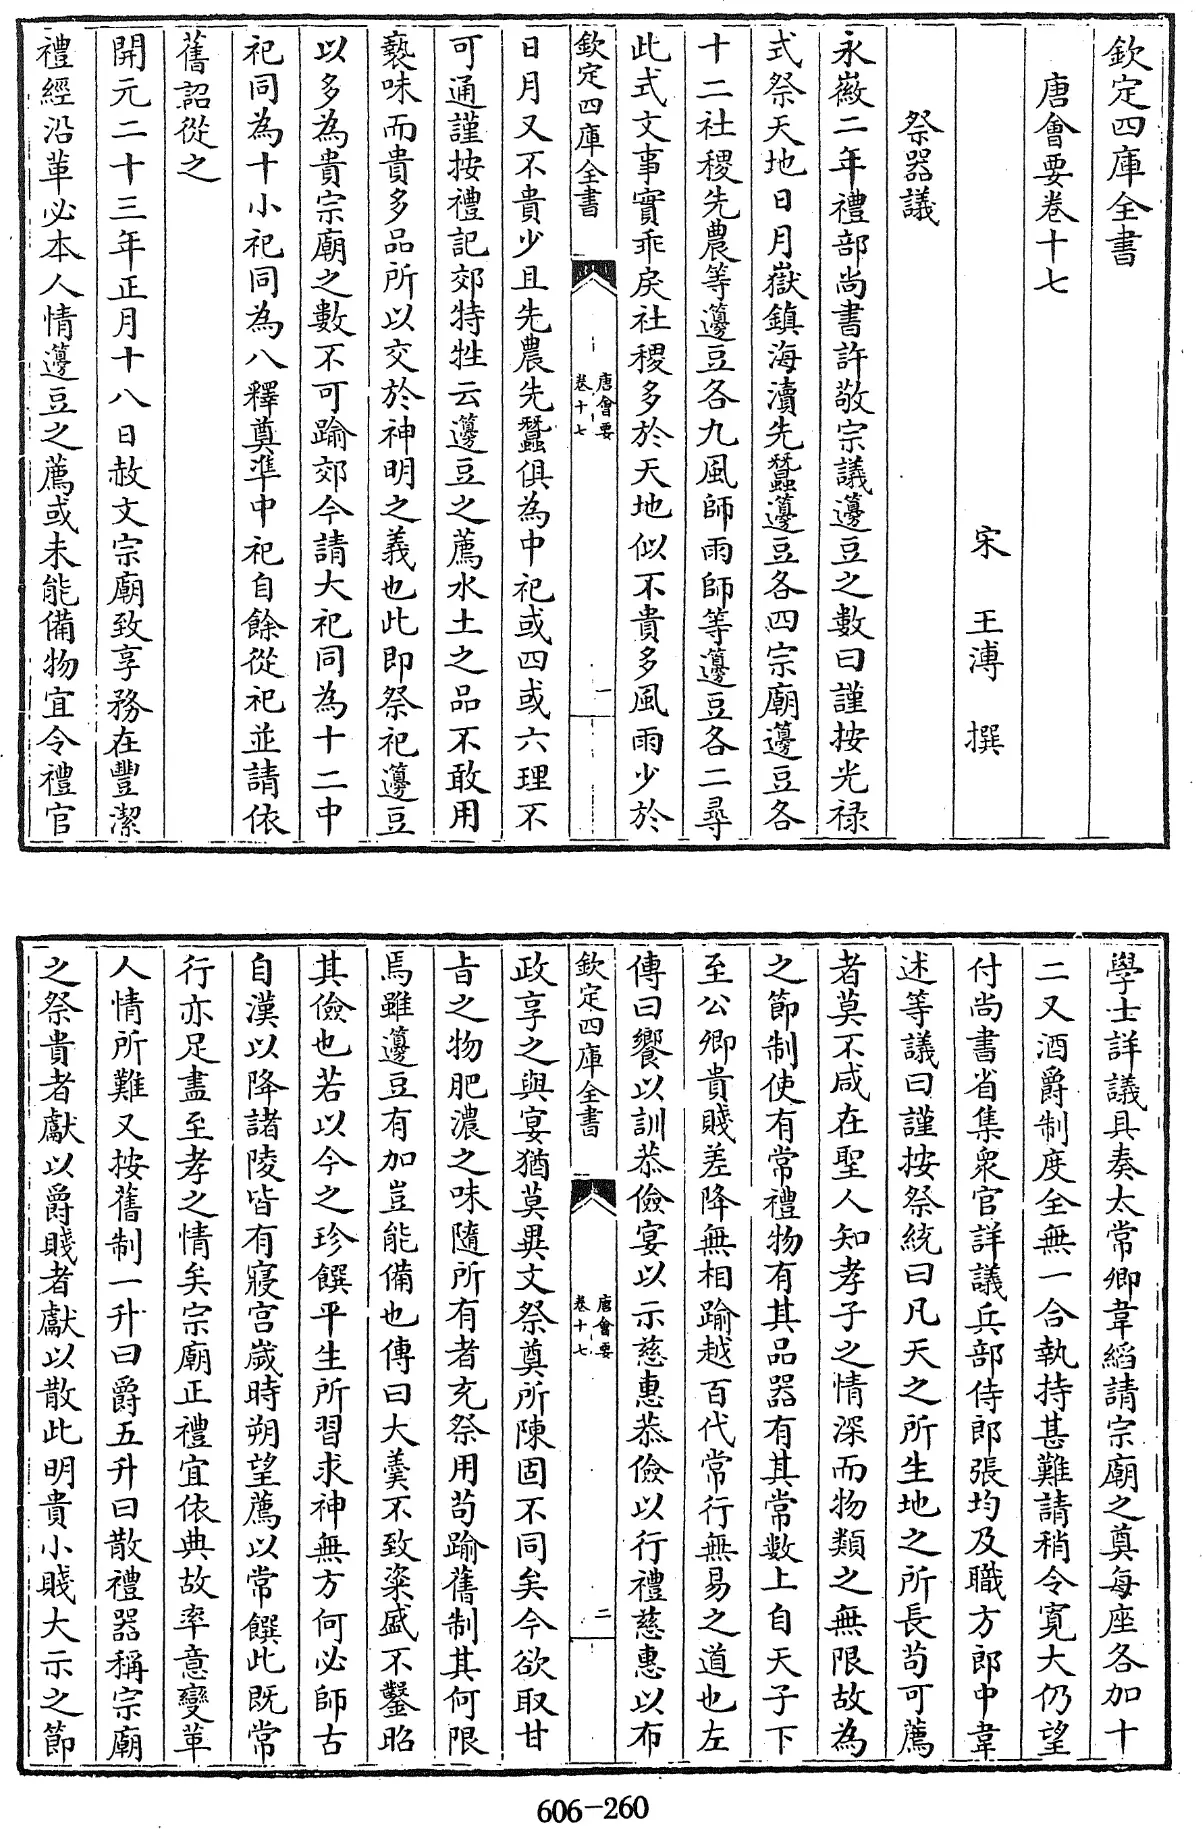 欽定四庫全書
唐會要卷十七
宋 王溥 撰
祭器議
永徽二年禮部尚書許敬宗議籩豆之數曰謹按光禄
式祭天地日月嶽鎮海瀆先蠶籩豆各四宗廟籩豆各
十二社稷先農等籩豆各九風師雨師等籩豆各二尋
此式文事實乖戾社稷多於天地似不貴多風雨少於
欽定四庫全書
唐會要
卷十七
一
日月又不貴少且先農先蠶俱為中祀或四或六理不
可通謹按禮記郊特牲云籩豆之薦水土之品不敢用
褻味而貴多品所以交於神明之義也此即祭祀籩豆
以多為貴宗廟之數不可踰郊今請大祀同為十二中
祀同為十小祀同為八釋奠準中祀自餘從祀並請依
舊詔從之
開元二十三年正月十八日赦文宗廟致享務在豐潔
禮經沿革必本人情籩豆之薦或未能備物宜令禮官
學士詳議具奏太常卿韋縚請宗廟之奠每座各加十
二又酒爵制度全無一合執持甚難請稍令寛大仍望
付尚書省集衆官詳議兵部侍郎張均及職方郎中韋
述等議曰謹按祭統曰凡天之所生地之所長苟可薦
者莫不咸在聖人知孝子之情深而物類之無限故為
之節制使有常禮物有其品器有其常數上自天子下
至公卿貴賤差降無相踰越百代常行無易之道也左
傳曰饗以訓恭儉宴以示慈惠恭儉以行禮慈惠以布
欽定四庫全書
唐會要
卷十七
二
政享之與宴猶莫異文祭奠所陳固不同矣今欲取甘
旨之物肥濃之味隨所有者充祭用苟踰舊制其何限
焉雖籩豆有加豈能備也傳曰大羹不致粢盛不鑿昭
其儉也若以今之珍饌平生所習求神無方何必師古
自漢以降諸陵皆有寢宫歲時朔望薦以常饌此既常
行亦足盡至孝之情矣宗廟正禮宜依典故率意變革
人情所難又按舊制一升曰爵五升曰散禮器稱宗廟
之祭貴者獻以爵賤者獻以散此明貴小賤大示之節
606-260